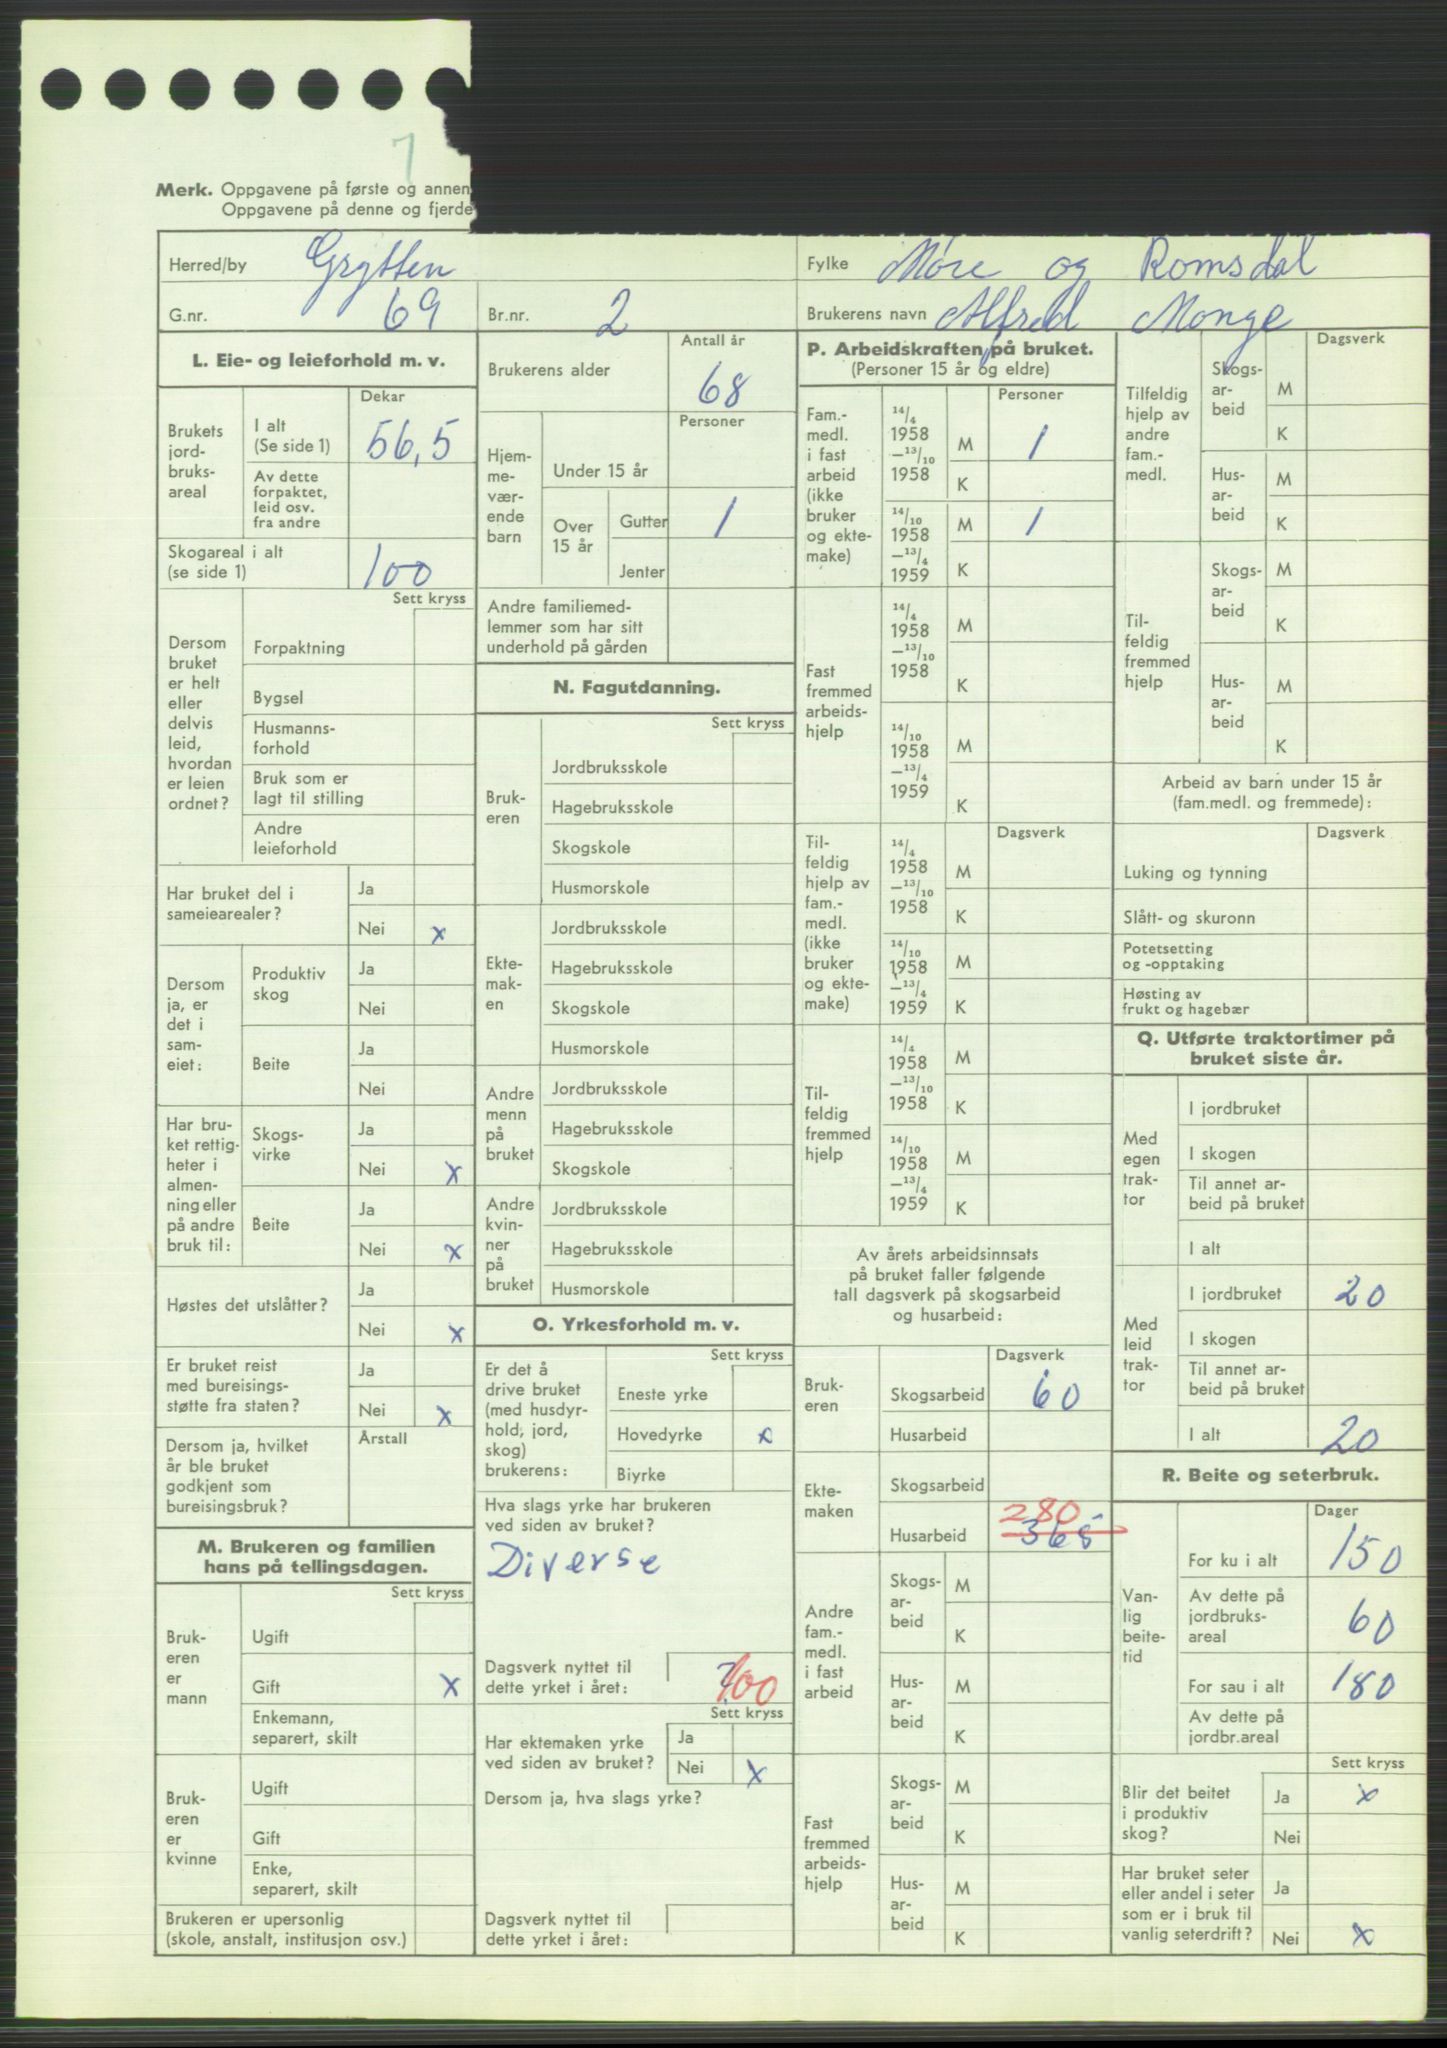 7
Merk. Oppgavene på første og annen
Oppgavene på denne og fjerde
Herred/by Grytten
Fylke Møre og Romsdal
G.nr. 69
Br.nr. 2
Brukerens navn Alfred Monge
L. Eie- og leieforhold m. v.
Dekar
Brukets jord- bruks- areal
I alt (Se side 1) 56,5
Av dette forpaktet, leid osv. fra andre
Skogareal i alt (se side 1) 100
Sett kryss
Dersom bruket er helt eller delvis leid, hvordan er leien ordnet?
Forpaktning
Bygsel
Husmanns- forhold
Bruk som er lagt til stilling
Andre leieforhold
Har bruket del i sameiearealer?
Ja
Nei x
Dersom ja, er det i sam- eiet:
Produktiv skog
Ja
Nei
Beite
Ja
Nei
Har bru- ket rettig- heter i almen- ning eller på andre bruk til:
Skogs- virke
Ja
Nei x
Beite
Ja
Nei x
Høstes det utslåtter?
Ja
Nei x
Er bruket reist med bureisings- støtte fra staten?
Ja
Nei x
Dersom ja, hvilket år ble bruket godkjent som bureisingsbruk?
Årstall
M. Brukeren og familien hans på tellingsdagen.
Sett kryss
Bruk- eren er mann
Ugift
Gift x
Enkemann, separert, skilt
Bruk- eren er kvinne
Ugift
Gift
Enke, separert, skilt
Brukeren er upersonlig (skole, anstalt, institusjon osv.)
Antall år
Brukerens alder 68
Personer
Hjem- me- vær- ende barn
Under 15 år
Over 15 år
Gutter 1
Jenter
Andre familiemed- lemmer som har sitt underhold på gården
N. Fagutdanning.
Sett kryss
Bruk- eren
Jordbruksskole
Hagebruksskole
Skogskole
Husmorskole
Ekte- mak- en
Jordbruksskole
Hagebruksskole
Skogskole
Husmorskole
Andre menn på bruket
Jordbruksskole
Hagebruksskole
Skogskole
Andre kvin- ner på bruket
Jordbruksskole
Hagebruksskole
Husmorskole
O. Yrkesforhold m. v.
Sett kryss
Er det å drive bruket (med husdyr- hold, jord, skog) brukerens:
Eneste yrke
Hovedyrke x
Biyrke
Hva slags yrke har brukeren ved siden av bruket?
Diverse
Dagsverk nyttet til dette yrket i året: ? 100
Sett kryss
Har ektemaken yrke ved siden av bruket?
Ja
Nei x
Dersom ja, hva slags yrke?
Dagsverk nyttet til dette yrket i året:
P. Arbeidskraften på bruket.
(Personer 15 år og eldre)
Personer
Fam.- medl. i fast arbeid (ikke bruker og ekte- make)
14/4 1958 — 13/10 1958
M 1
K
14/10 1958 — 13/4 1959
M 1
K
Fast fremmed arbeids- hjelp
14/4 1958 — 13/10 1958
M
K
14/10 1958 — 13/4 1959
M
K
Dagsverk
Til- feldig hjelp av fam.- medl. (ikke bruker og ekte- make)
14/4 1958 — 13/10 1958
M
K
14/10 1958 — 13/4 1959
M
K
Til- feldig fremmed hjelp
14/4 1958 — 13/10 1958
M
K
14/10 1958 — 13/4 1959
M
K
Av årets arbeidsinnsats på bruket faller følgende tall dagsverk på skogsarbeid og husarbeid:
Dagsverk
Bruk- eren
Skogsarbeid 60
Husarbeid
Ekte- maken
Skogsarbeid
Husarbeid 280 365
Andre fam.- medl. i fast arbeid
Skogs- ar- beid
M
K
Hus- ar- beid
M
K
Fast fremmed arbeids- hjelp
Skogs- ar- beid
M
K
Hus- ar- beid
M
K
Dagsverk
Tilfeldig hjelp av andre fam.- medl.
Skogs- ar- beid
M
K
Hus- ar- beid
M
K
Til- feldig fremmed hjelp
Skogs- ar- beid
M
K
Hus- ar- beid
M
K
Arbeid av barn under 15 år (fam.medl. og fremmede):
Dagsverk
Luking og tynning
Slått- og skuronn
Potetsetting og -opptaking
Høsting av frukt og hagebær
Q. Utførte traktortimer på bruket siste år.
Med egen trak- tor
I jordbruket
I skogen
Til annet ar- beid på bruket
I alt
Med leid trak- tor
I jordbruket 20
I skogen
Til annet ar- beid på bruket
I alt 20
R. Beite og seterbruk.
Dager
Van- lig beite- tid
For ku i alt 150
Av dette på jordbruks- areal 60
For sau i alt 180
Av dette på jordbr.areal
Sett kryss
Blir det beitet i produktiv skog?
Ja x
Nei
Har bruket seter eller andel i seter som er i bruk til vanlig seterdrift?
Ja
Nei x